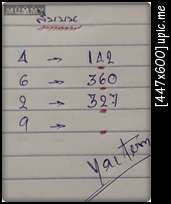 MUMMY
1 → 142
6 → 360
2 → 327
9 →
Yai tem
[447x600] upic.me